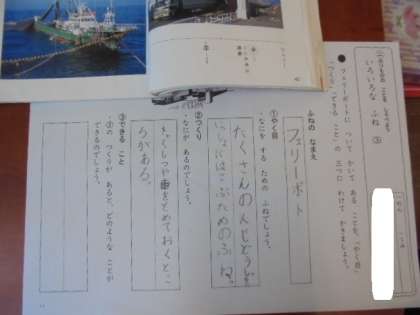 いろいろな ふね ③
フェリーボートに ついて かいて ある ことを、「やく目」
「つくり」「できる こと」の 三つに わけて かきましょう。
ふねの なまえ
フェリーボート
①やく目
・なにを する ための ふねでしょう。
たくさんの人とじどう車を
いっしょにはこぶためのふね。
②つくり
・なにが あるのでしょう。
きゃくしつや車をとめておくとこ
ろがある。
③できる こと
・②の つくりが あると、どのような ことが
できるのでしょう。